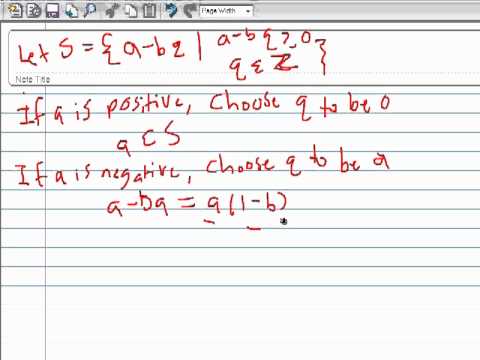 Page Width
Let S = { a-bq | a-bq ≥ 0, q ε Z }
Note Title
If a is positive, choose q to be 0
a ε S
If a is negative, choose q to be a
a-ba = a(1-b)